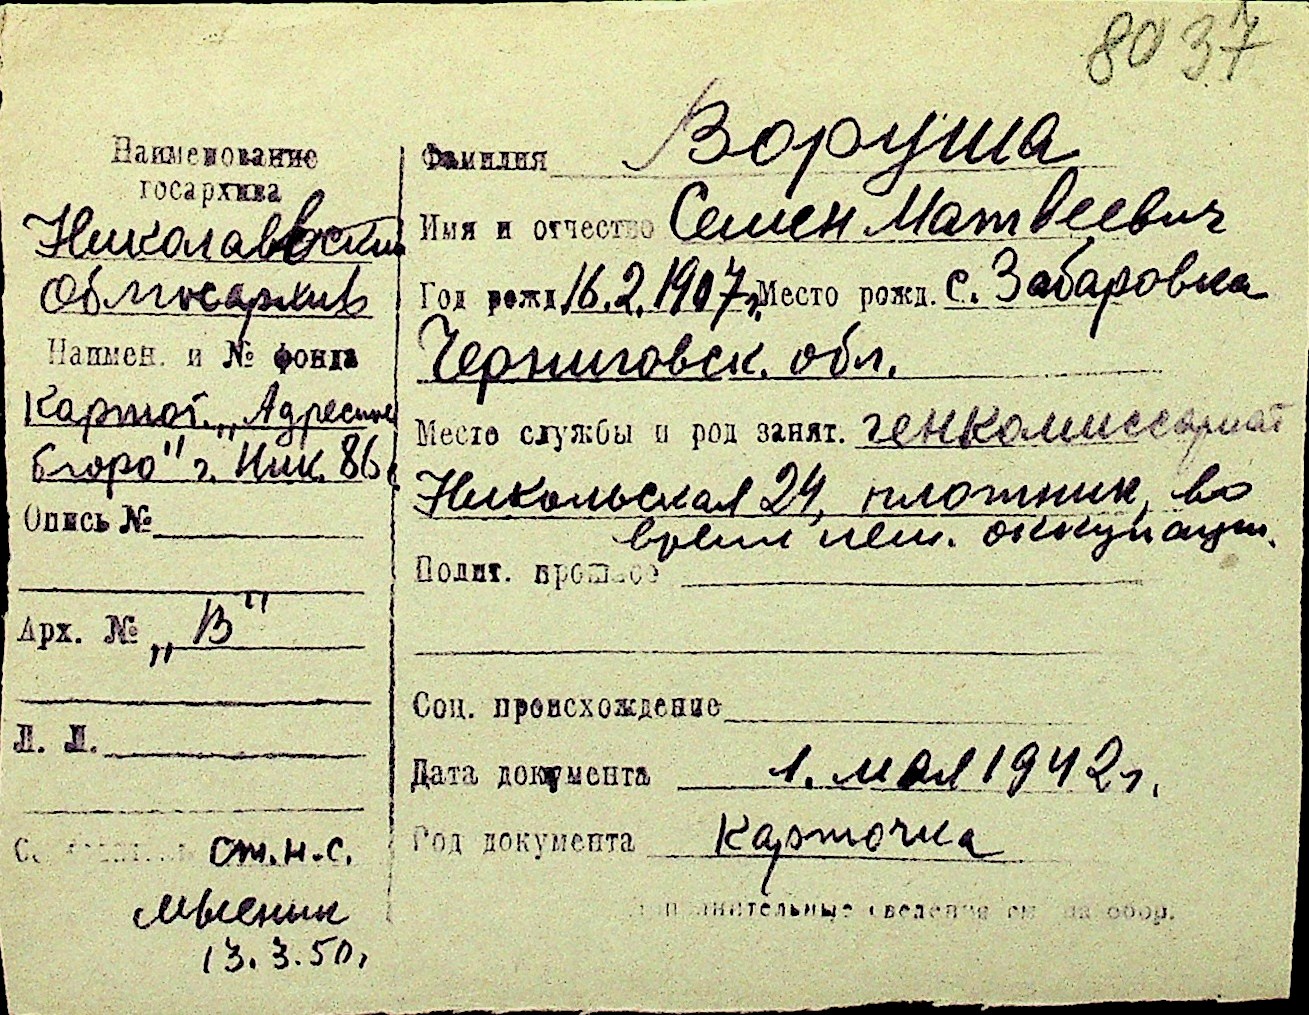 80 37
Наименование
госархива
Николаевский
Облгосархив
Наимен. и № фонда
Картот. „Адресное
бюро" г. Ник. 86 с
Опись №
Арх. № „В"
Л. Л.
Составитель ст.н.с.
Мысник
13.3.50г
Фамилия Воруша
Имя и отчество Семен Матвеевич
Год рожд 16.2.1907г. Место рожд. с. Забаровка
Черниговск. обл.
Место службы и род занят. генкомиссариат
Никольская 24, плотник, во
время нем. оккупации.
Полит. прошлое
Соц. происхождение
Дата документа 1. мая 1942 г.
Род документа карточка
Дополнительные сведения см. на обор.